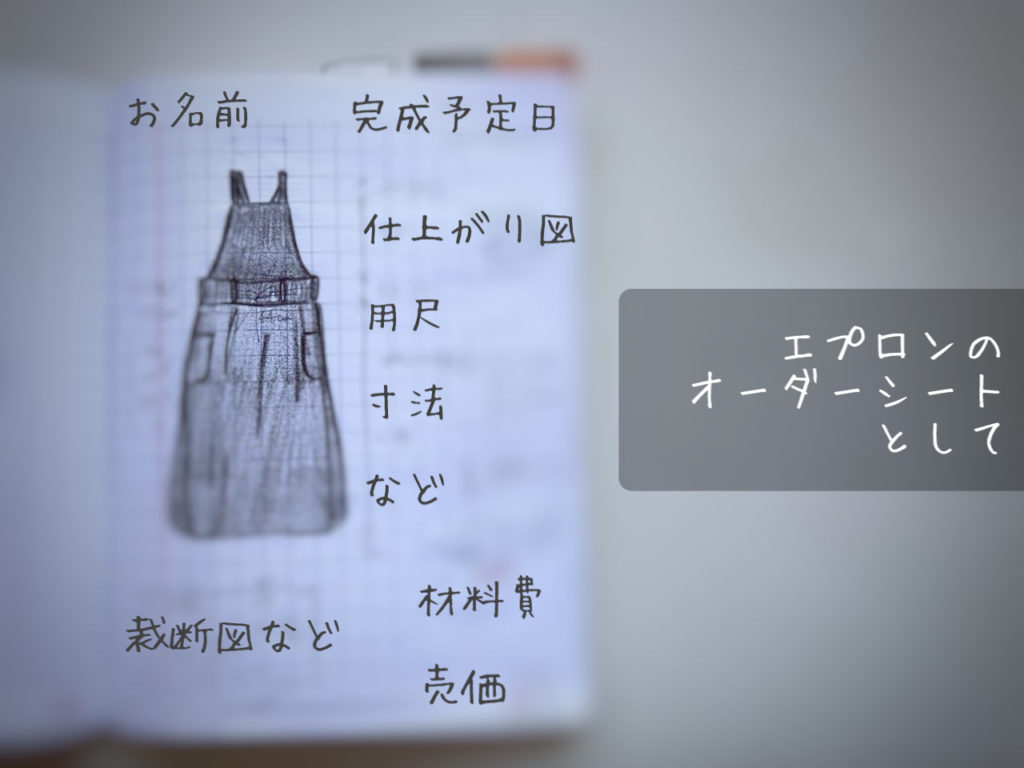 お名前
完成予定日
仕上がり図
用尺
寸法
など
材料費
裁断図など
売価
エプロンの
オーダーシート
として